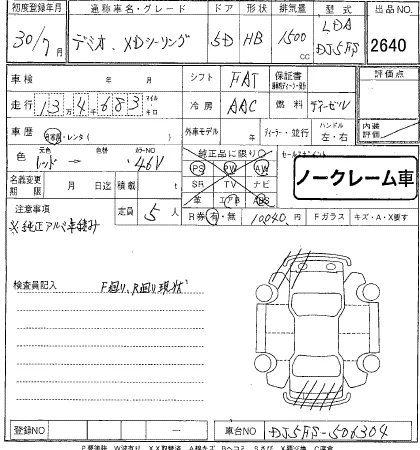 初度登録年月 通称車名・グレード ドア 形状 排気量 型式 出品NO.
30/7月 デミオ、XDツーリング 5D HB 1500cc LDA DJ5FS 2640
車検 年 月 シフト FAT 保証書 評価点
走行 13万4千683 マイル キロ 冷房 AAC 燃料 デーゼル 内装評価
車歴 自家用・レンタ( ) 外車モデル 年 ディーラー・並行 ハンドル 左・右
色 元色 レッド → 色替 カラーNO 46V 純正品に限り○ セールスポイント
PS PW AW
名義変更期限 月 日迄 積載 t SR TV ナビ ノークレーム車
革 エアB ABS
注意事項 定員 5人 R券 有・無 10,040円 Fガラス キズ・A・X要す
※純正アルミ車積み
検査員記入 F廻り、R廻り現状
登録NO 車台NO DJ5FS-506304